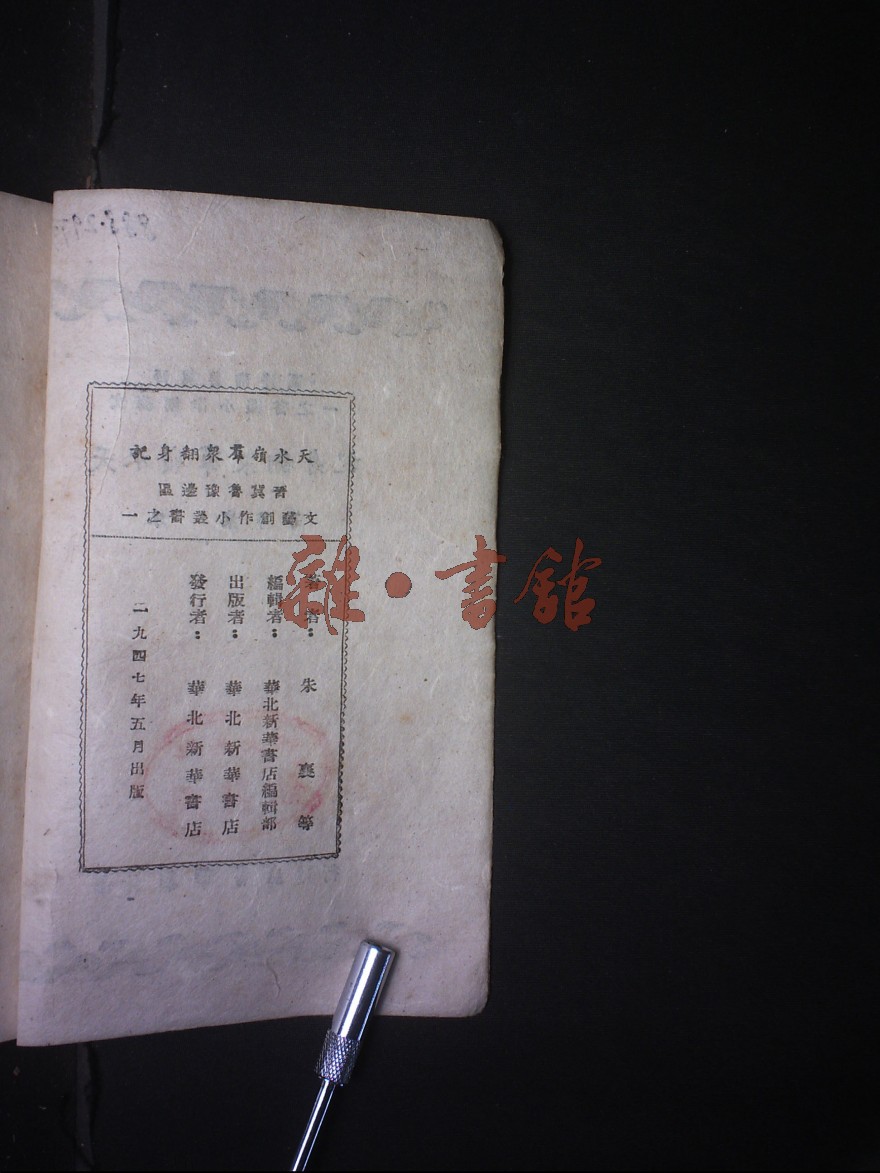 天水嶺羣眾翻身記
晋冀魯豫邊區
文藝創作小叢書之一
著者：朱襄等
編輯者：華北新華書店編輯部
出版者：華北新華書店
發行者：華北新華書店
一九四七年五月出版
雜·書館